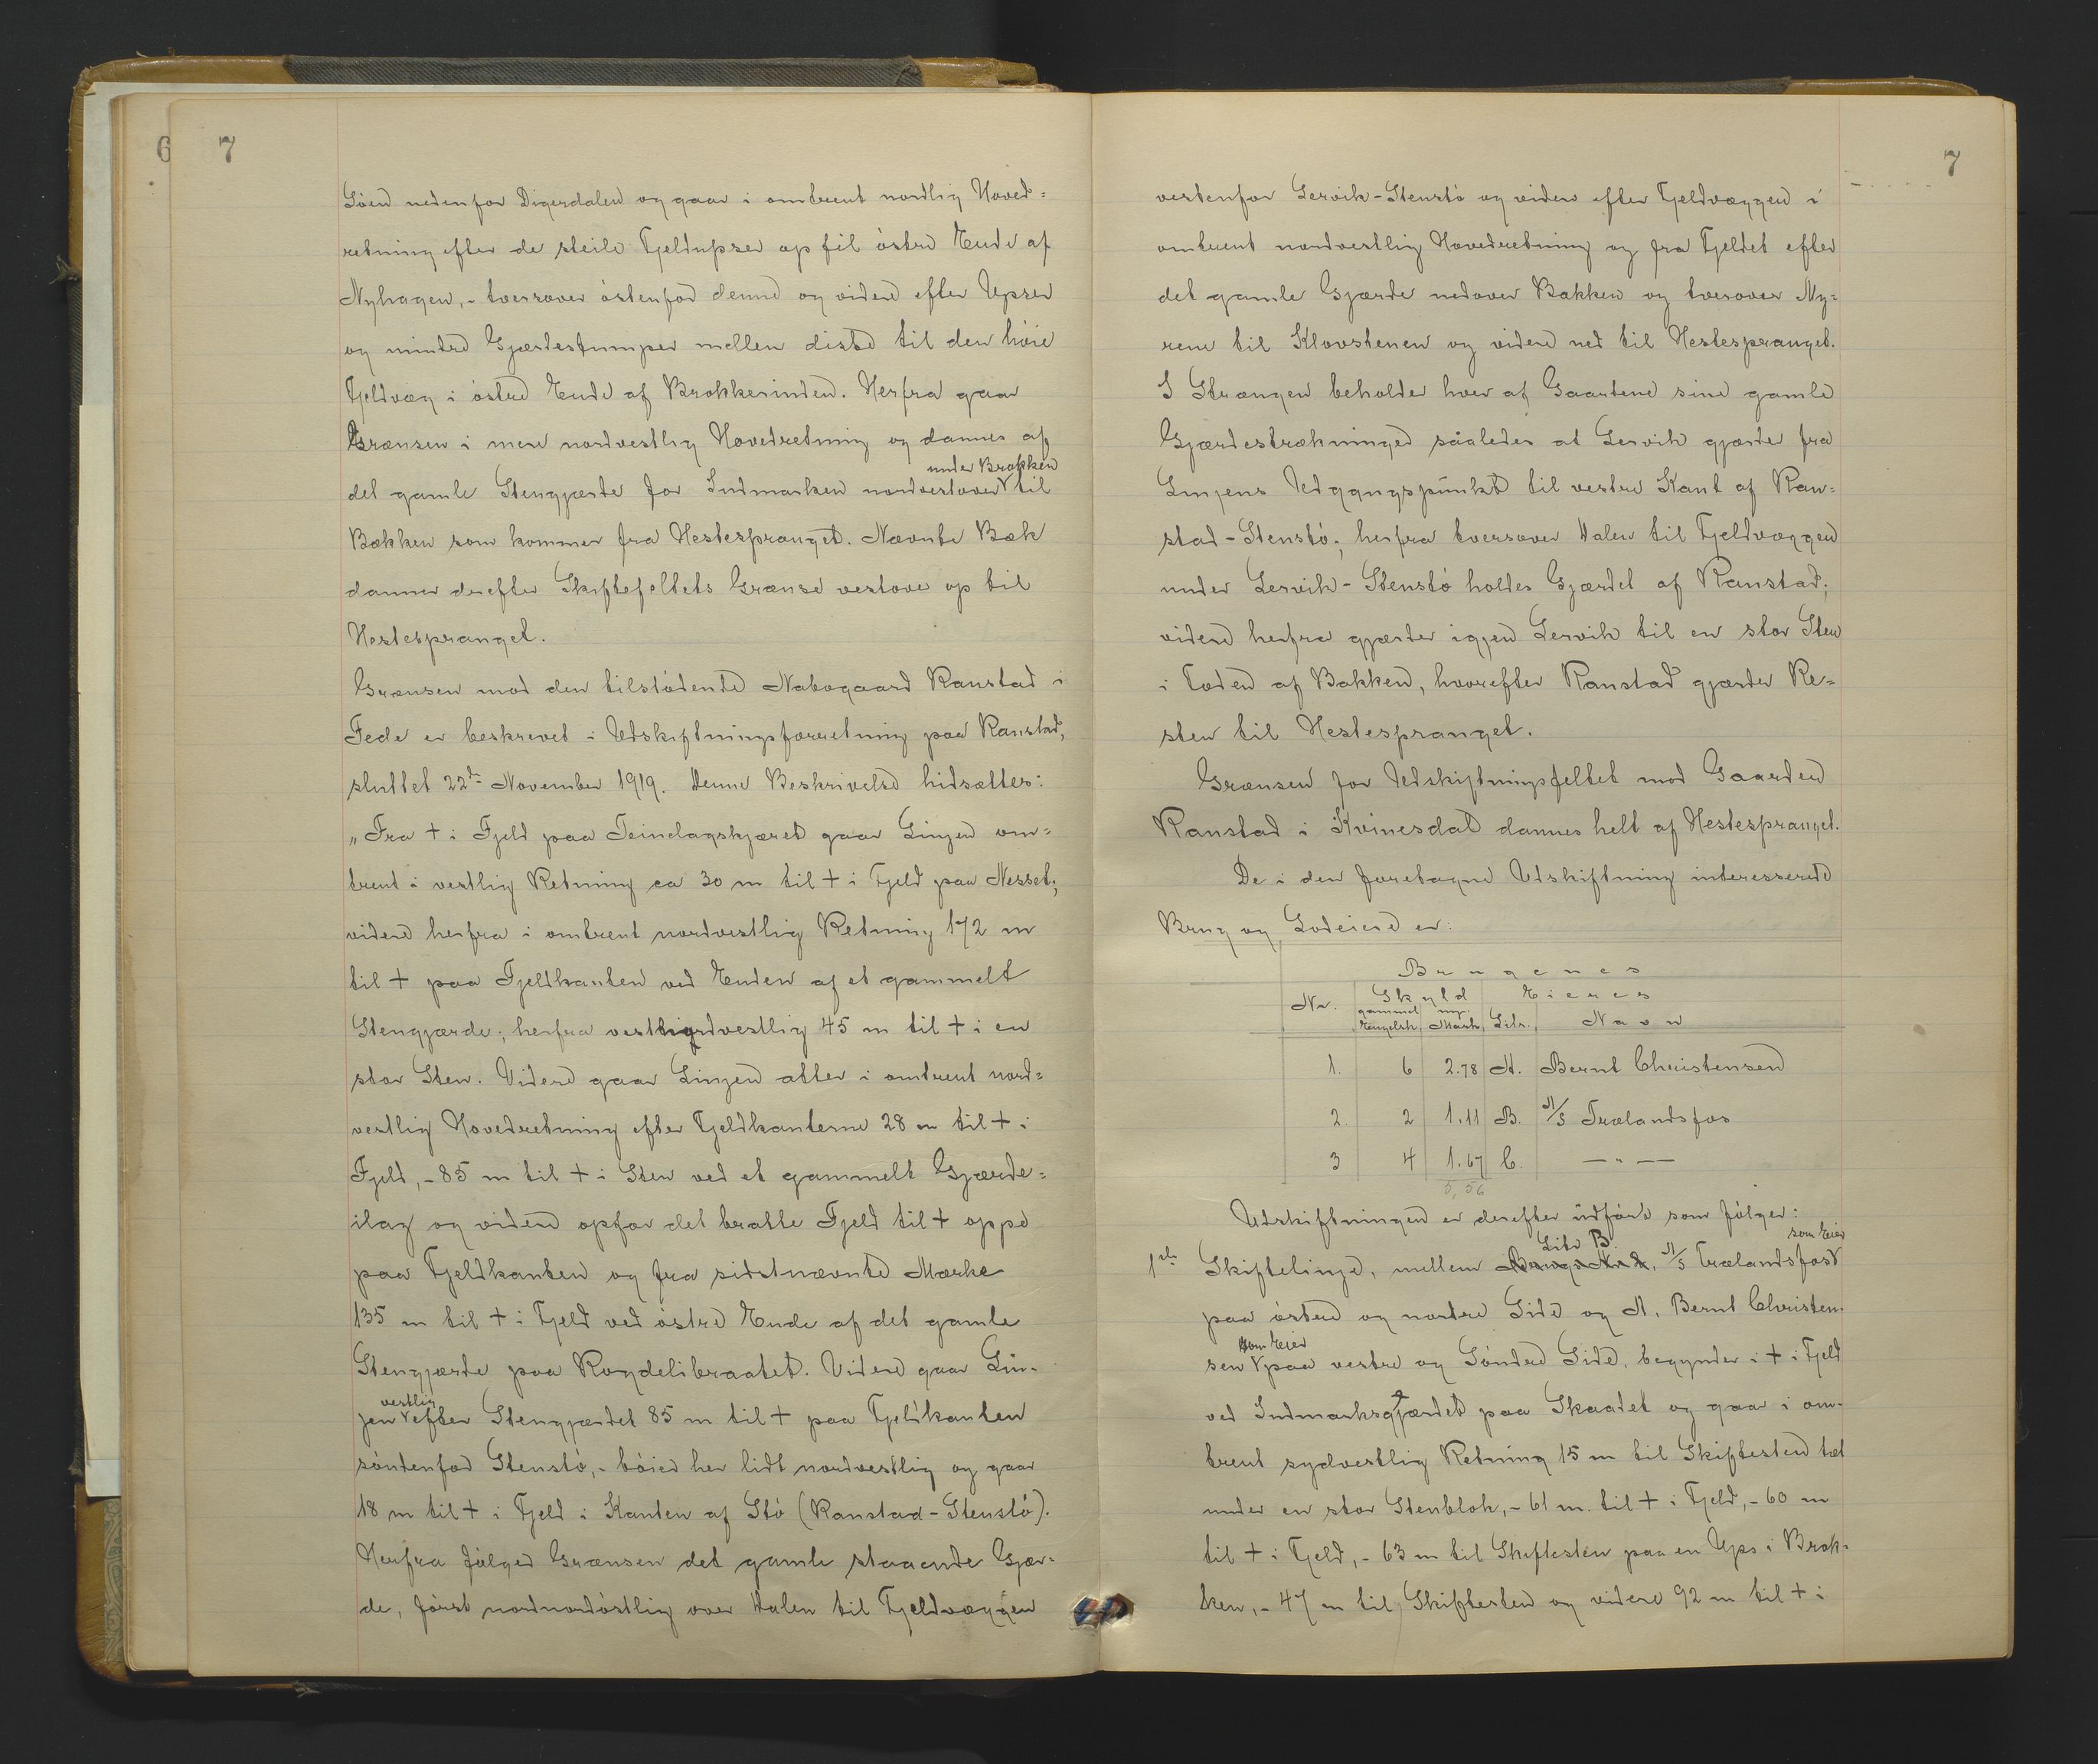 6 7
Söen nedenfor Digerdalen og gaar i omtrent nordlig Hoved=
retning efter de steile Fjeldupser op til östre Ende af
Nyhagen, - tversover östenfor denne og videre efter Upser
og mindre Gjærdestumper mellen disse til den höie
Fjeldvæg i östre Ende af Brokkerinden. Herfra gaar
Grænsen i mere nordvestlig Hovedretning og dannes af
under Brokken
det gamle Stengjærde for Indmarken nordvestover til
Bækken som kommer fra Hestespranget. Nævnte Bæk
danner derefter Skiftefeltets Grænse vestover op til
Hestespranget.
Grænsen mod den tilstödende Nabogaard Ranstad i
Fede er beskrevet i Udskiftningsforretning paa Ranstad,
sluttet 22de November 1919. Denne Beskrivelse hidsættes:
„Fra + i Fjeld paa Teindagskjæret gaar Linjen om=
trent i vestlig Retning ca 30 m til + i Fjeld paa Nesset;
videre herfra i omtrent nordvestlig Retning 172 m
til + paa Fjeldkanten ved Enden af et gammelt
Stengjærde; herfra vestlignordvestlig 45 m til + i en
stor Sten. Videre gaar Linjen atter i omtrent nord=
vestlig Hovedretning efter Fjeldkanterne 28 m til + i
Fjeld, - 85 m til + i Sten ved et gammelt Gjærde=
ilag og videre opfor det bratte Fjeld til + oppe
paa Fjeldkanten og fra sidstnævnte Mærke
135 m til + i Fjeld ved östre Ende af det gamle
Stengjærde paa Rogdelibraatet. Videre gaar Lin-
vestlig
jen efter Stengjærdet 85 m til + paa Fjeldkanten
söndenfor Stenstö, - böier her lidt nordvestlig og gaar
18 m til + i Fjeld i Kanten af Stö (Ranstad - Stenstö).
Herfra fölger Grænsen det gamle staaende Gjær-
de, först nordnordöstlig over Dalen til Fjeldvæggen
7
vestenfor Lervik - Stenstö og videre efter Fjeldvæggen i
omtrent nordvestlig Hovedretning og fra Fjeldet efter
det gamle Gjærde nedover Bakken og tversover My=
rene til Klovstenen og videre ned til Hestespranget.
I Strængen beholder hver af Gaardene sine gamle
Gjærdestrækninger således at Lervik gjærder fra
Linjens Udgangspunkt til vestre Kant af Ran=
stad - Stenstö; herfra tversover Dalen til Fjeldvæggen
under Lervik - Stenstö holdes Gjærdet af Ranstad;
videre herfra gjærder igjen Lervik til en stor Sten
i Foden af Bakken, hvorefter Ranstad gjærder Re=
sten til Hestespranget.
Grænsen for Udskiftningsfeltet mod Gaarden
Ranstad i Kvinesdal dannes helt af Hestespranget.
De i den foretagne Udskiftning interesserede
Brug og Lodeiere er:
Brugenes
Nr. Skyld Eieres
gammel ny.
Mark Litr. Navn
1. 6 2.78 A. Bernt Christensen
2. 2 1.11 B. A/S Trælandsfos
3 4 1.67 C. — „ —
5,56
Udskiftningen er derefter udfört som fölger:
Litr B. som Eier
1ste Skiftelinje, mellem Brugs No 2, A/S Trælandsfos
paa östre og nordre Side og A. Bernt Christen-
som Eier
sen paa vestre og Söndre Side, begynder i + i Fjeld
ved Indmarksgjærdet paa Skaatet og gaar i om-
trent sydvestlig Retning 15 m til Skiftesten tæt
under en stor Stenblok, - 61 m. til + i Fjeld, - 60 m
til + i Fjeld, - 63 m til Skiftesten paa en Ups i Brok-
ken, - 47 m til Skiftesten og videre 92 m til + i